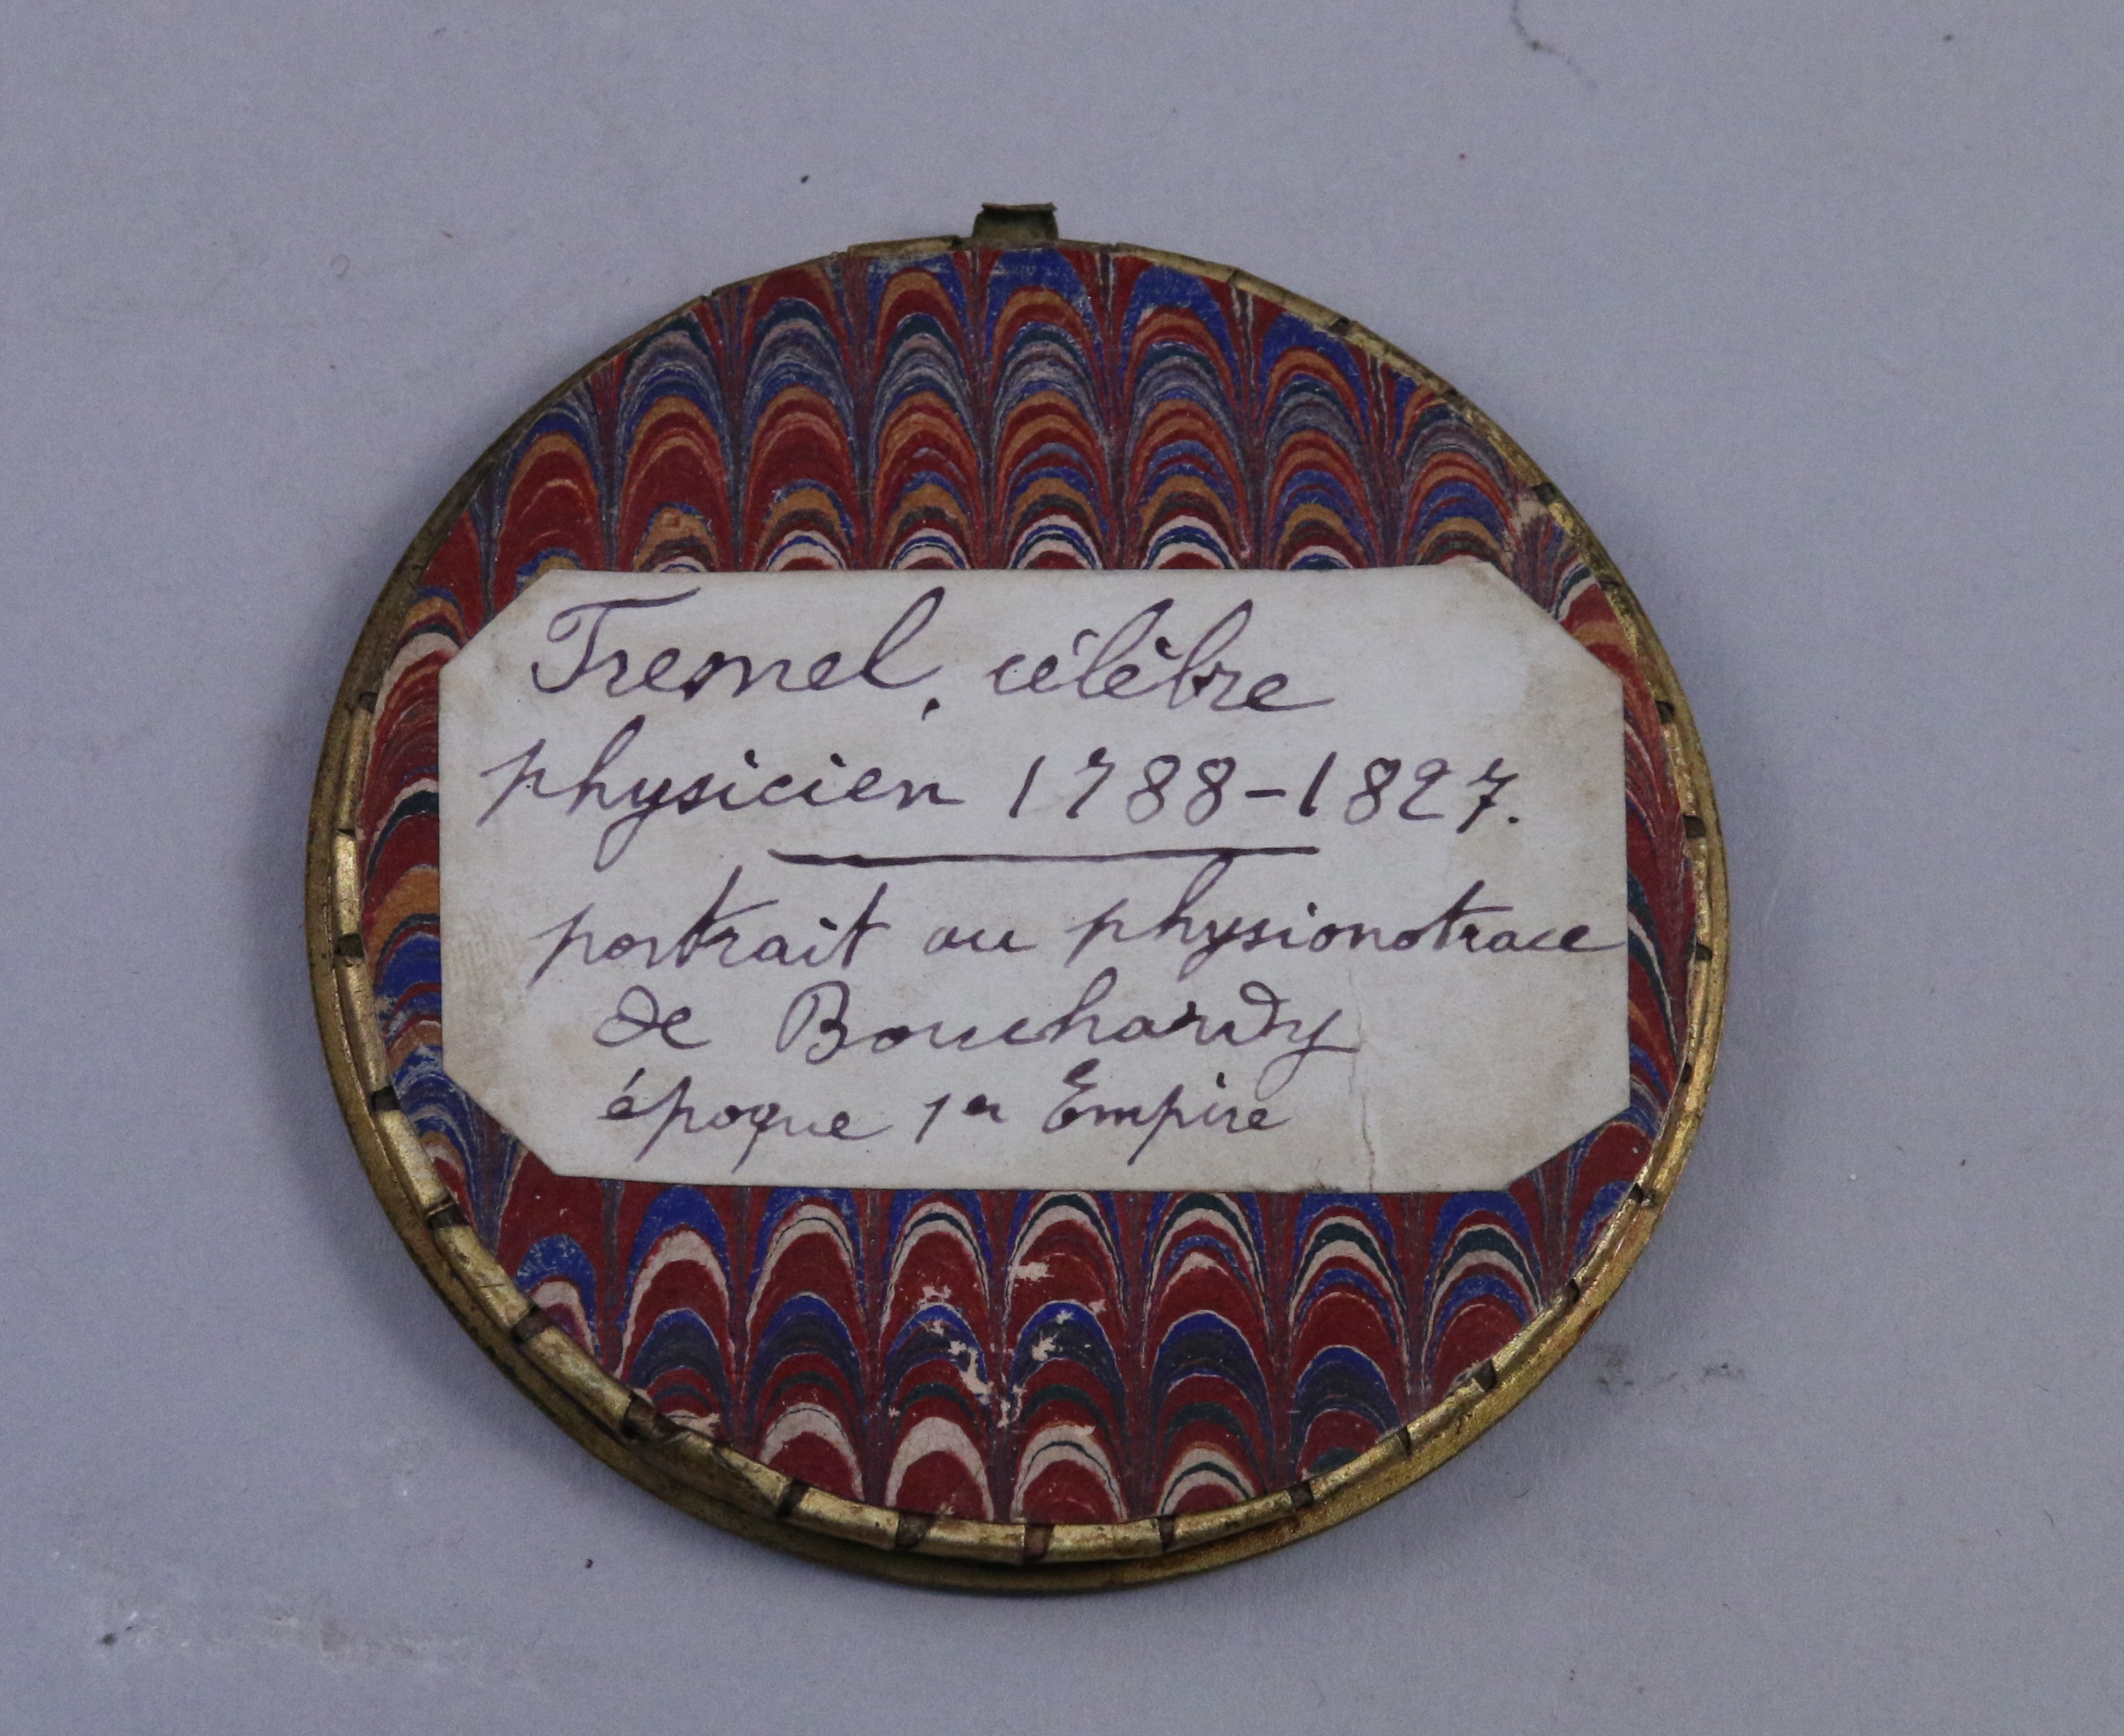 Fresnel, célèbre
physicien 1788-1827.
portrait au physionotrace
de Bouchardy
époque 1er Empire